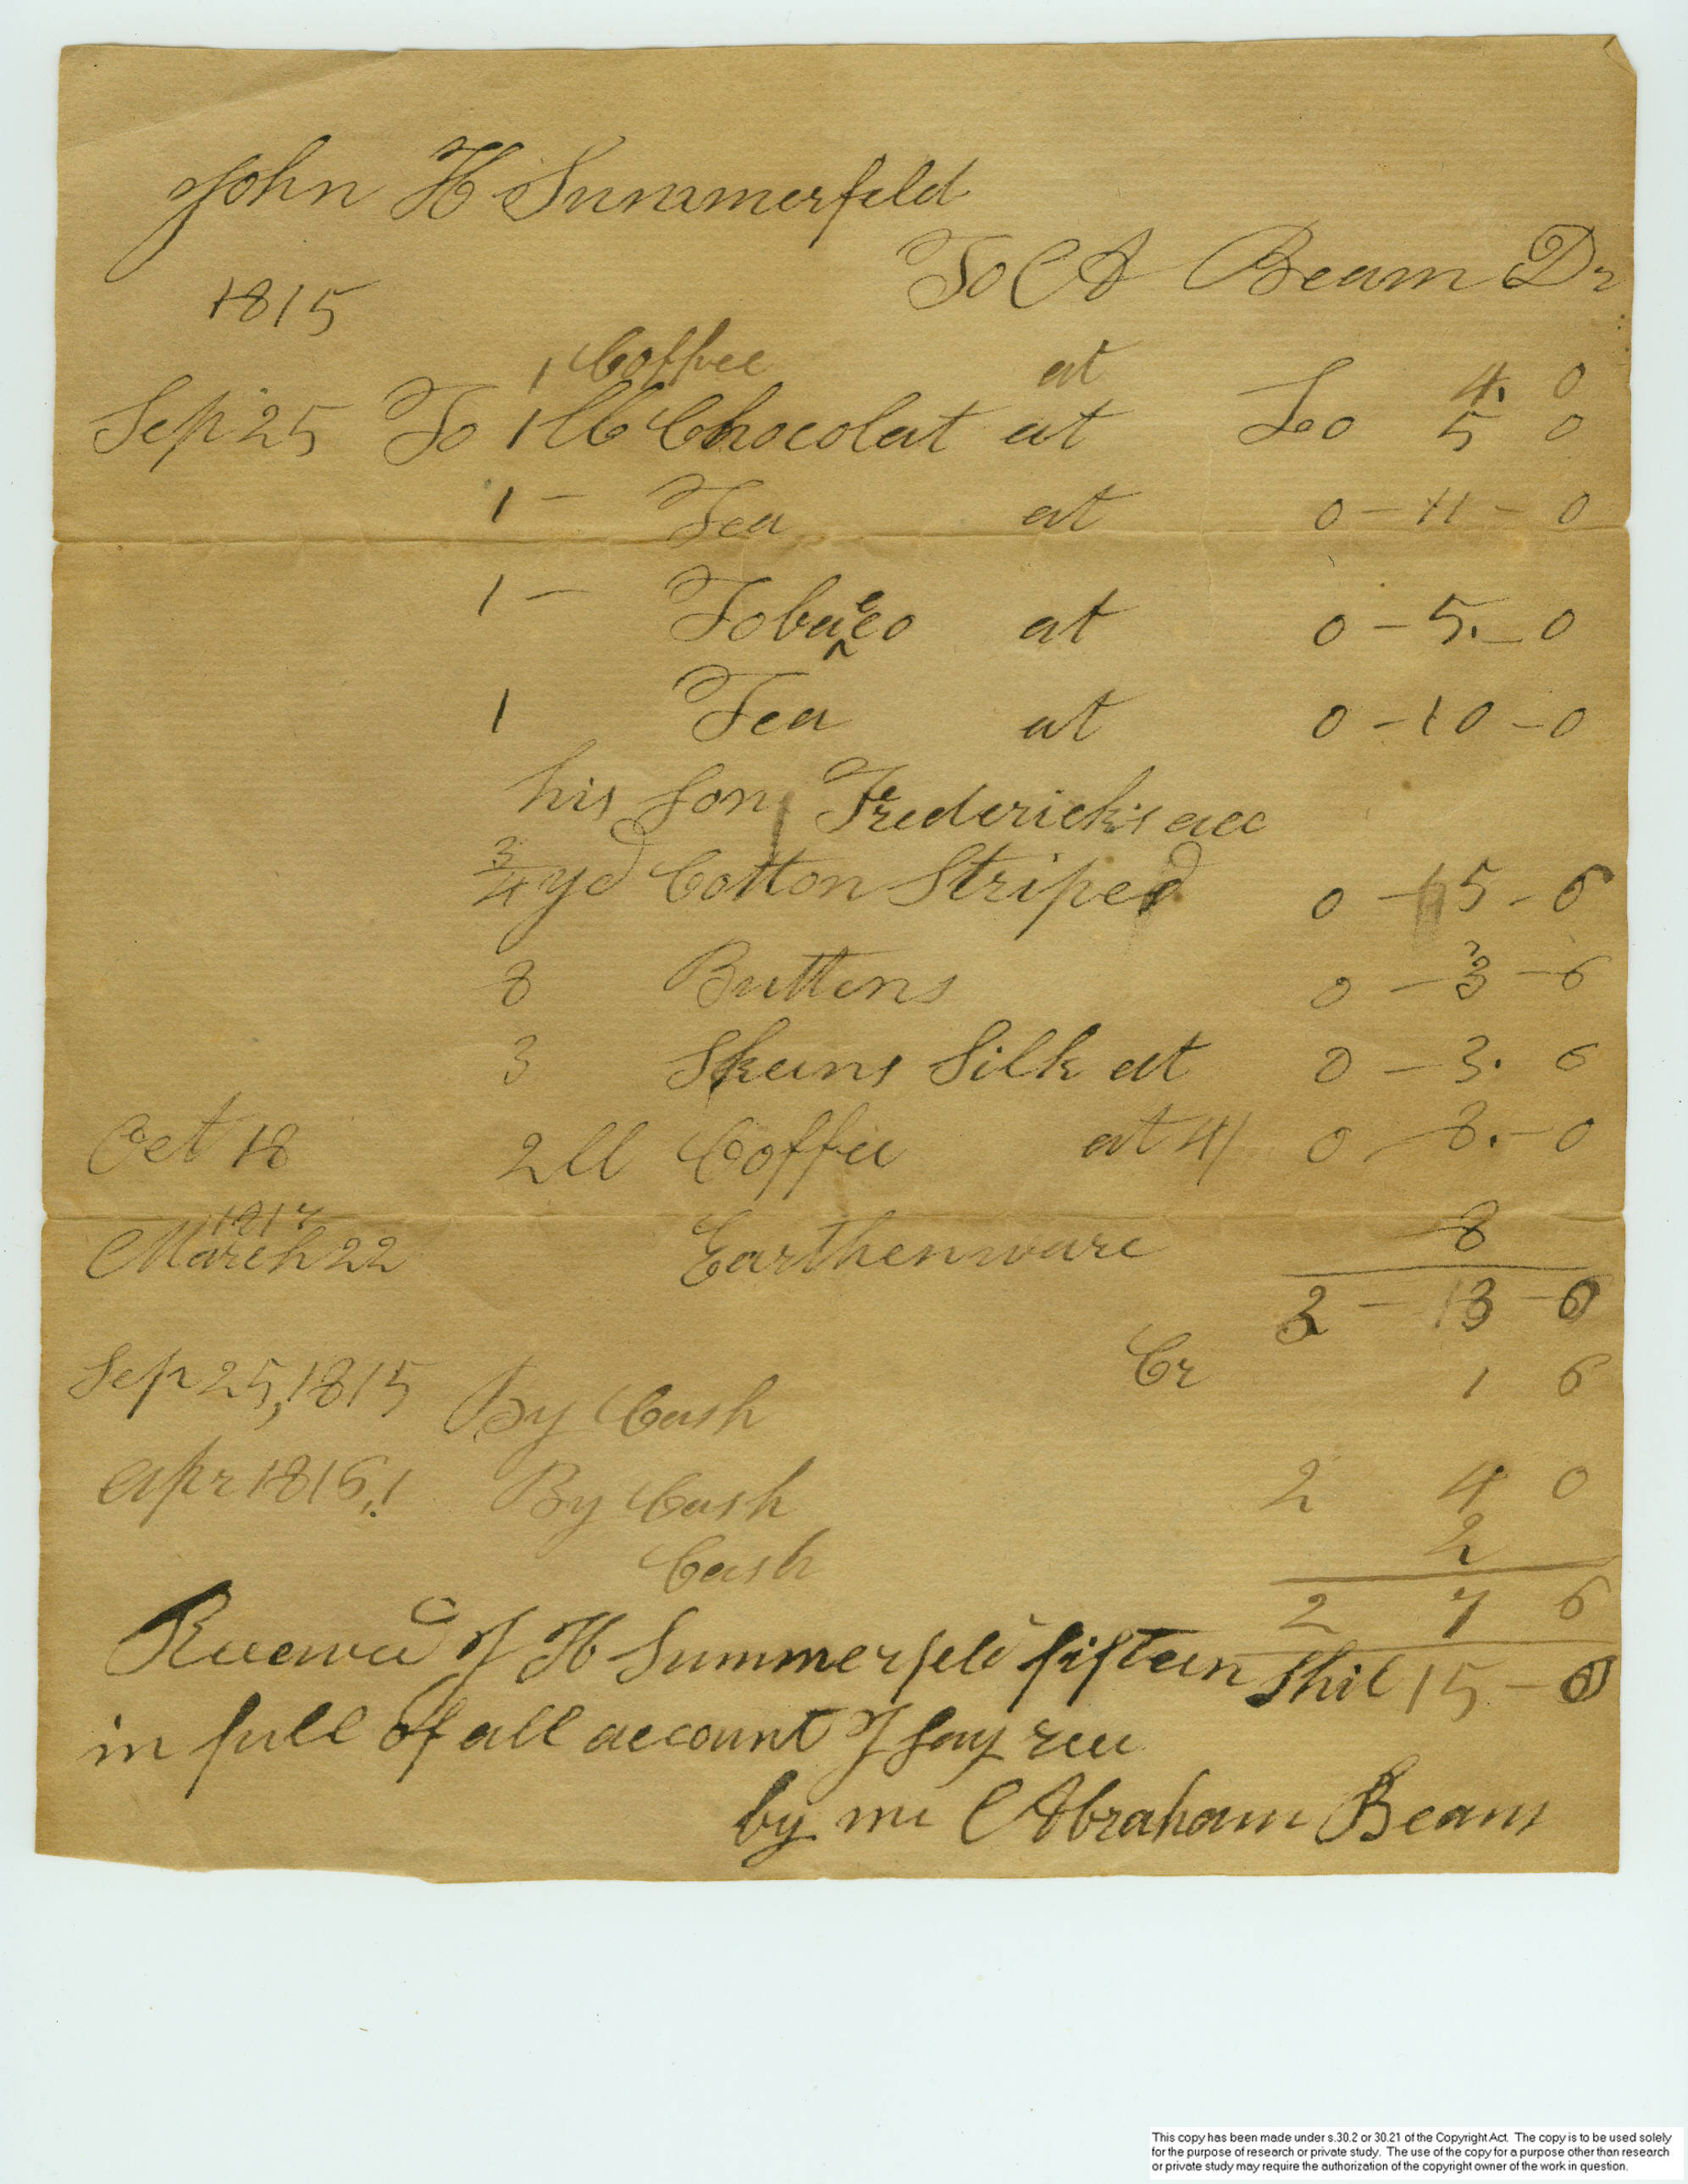 John H Summerfeld
To A Beam Dr
1815
1 Coffee at 4. 0
Sep 25 To 1 lb Chocolat at £o 5 0
1 – Tea at 0 – 11 – 0
1 – Tobacco at 0 – 5. – 0
1 Tea at 0 – 10 – 0
his son Frederick's acc
3/4 yd Cotton Striped 0 – 5 – 6
8 Buttens 0 – 3 – 6
3 Skeins Silk at 0 – 3. 6
Oct 18 2 ll Coffee at 4/ 0 – 8. – 0
1817
March 22 Earthenware 8
3 – 3 – 6
Cr
Sep 25, 1815 By Cash 1 6
Apr 1816,,1 By Cash 2 4 0
Cash 2
2 7 6
Received of H Summerfeld fifteen Shil 15 – 0
in full of all account I say rec
by me Abraham Beam
This copy has been made under s.30.2 or 30.21 of the Copyright Act. The copy is to be used solely
for the purpose of research or private study. The use of the copy for a purpose other than research
or private study may require the authorization of the copyright owner of the work in question.